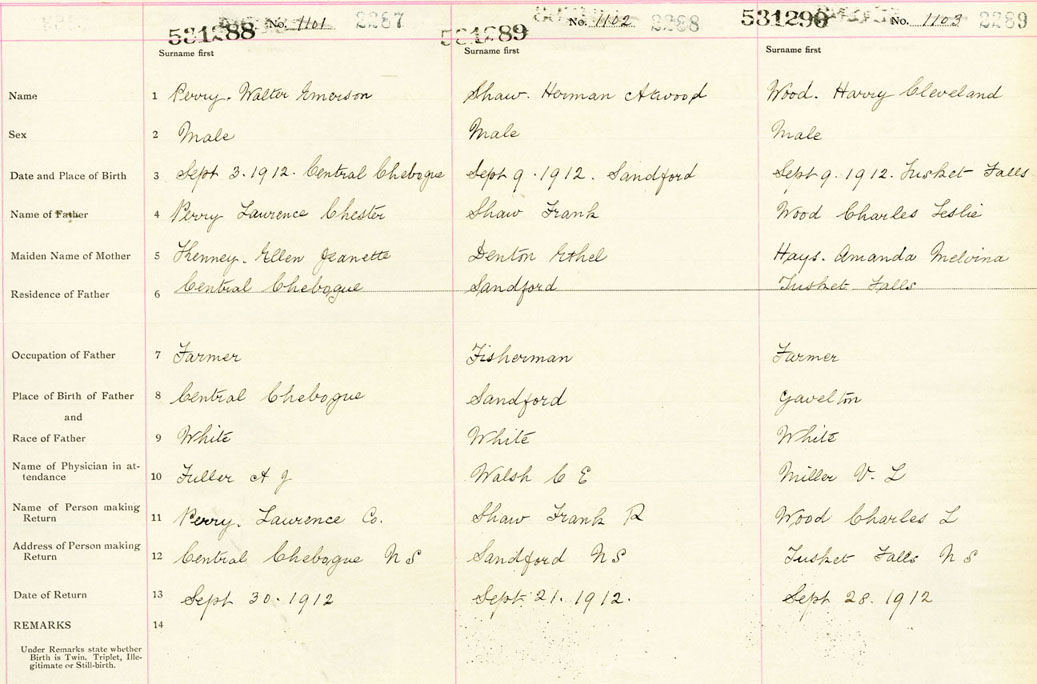 531288 No. 1101 2287 531289 No. 1102 2288 531290 No. 1103 2289
Surname first Surname first Surname first
Name 1 Perry. Walter Emerson Shaw. Herman Atwood Wood. Harry Cleveland
Sex 2 Male Male Male
Date and Place of Birth 3 Sept 3. 1912. Central Chebogue Sept 9. 1912. Sandford Sept 9. 1912. Tusket Falls
Name of Father 4 Perry Lawrence Chester Shaw Frank Wood Charles Leslie
Maiden Name of Mother 5 Kenney. Ellen Jeanette Denton Ethel Hays. Amanda Melvina
Residence of Father 6 Central Chebogue Sandford Tusket Falls
Occupation of Father 7 Farmer Fisherman Farmer
Place of Birth of Father 8 Central Chebogue Sandford Gavelton
and
Race of Father 9 White White White
Name of Physician in at-
tendance 10 Fuller A J Walsh C E Miller V. L
Name of Person making
Return 11 Perry. Lawrence Co. Shaw Frank R Wood Charles L
Address of Person making
Return 12 Central Chebogue N S Sandford N S Tusket Falls N S
Date of Return 13 Sept 30. 1912 Sept. 21. 1912. Sept 28. 1912
REMARKS 14
Under Remarks state whether
Birth is Twin, Triplet, Ille-
gitimate or Still-birth.